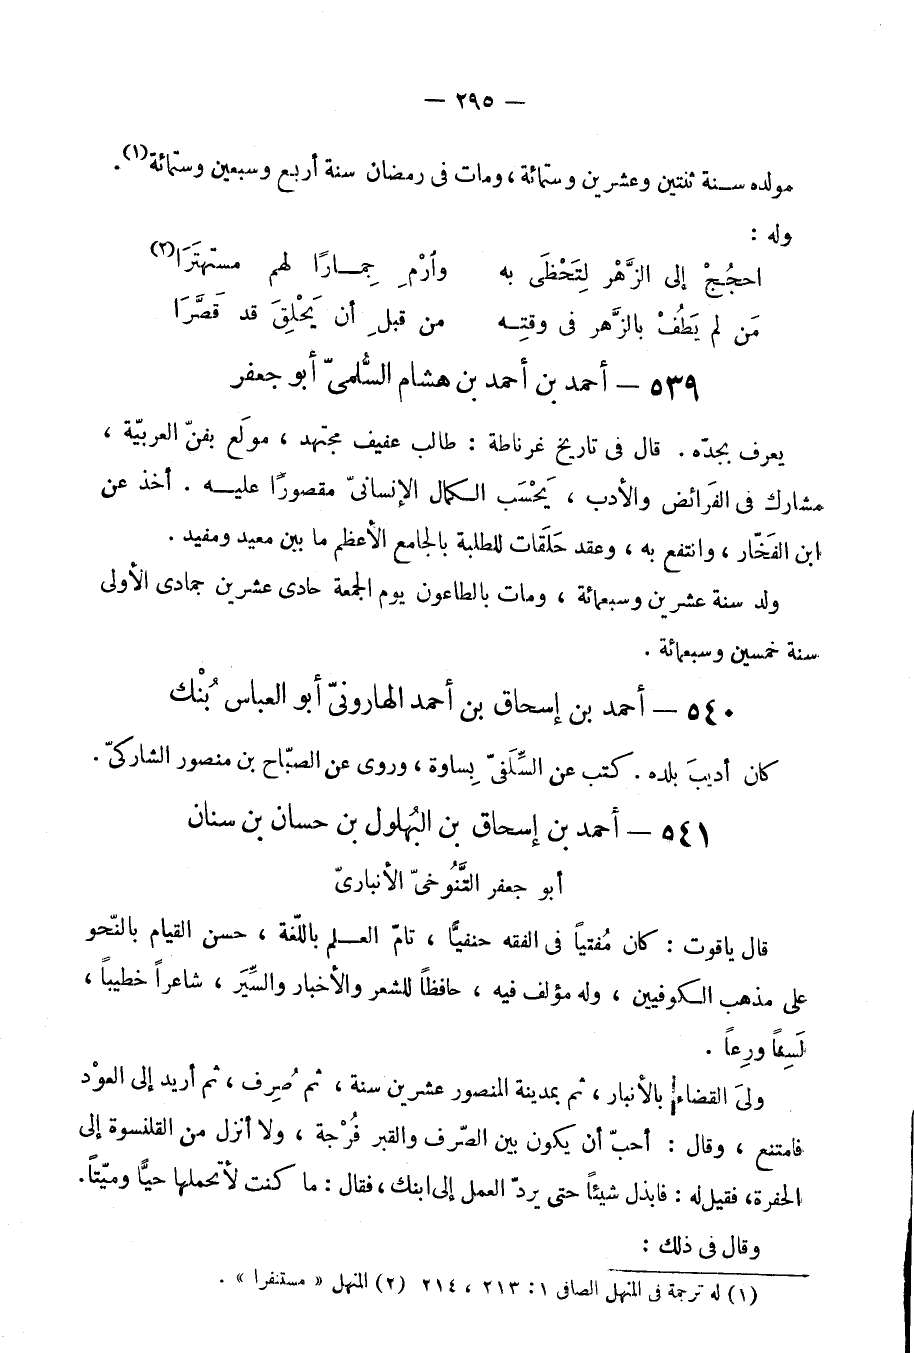 — ٢٩٥ —
مولده سنة ثنتين وعشرين وستمائة ، ومات فى رمضان سنة أربع وسبعين وستمائة(١) .
وله :
احجُجْ إلى الزَّهْر لِتَحْظَى به وٱرْمِ جِمارًا لهم مستهتَرَا(٢)
مَن لم يَطُفْ بالزَّهر فى وقتِه من قبلِ أن يَحْلِقَ قد قَصَّرَا
٥٣٩ – أحمد بن أحمد بن هشام السُّلمىّ أبو جعفر
يعرف بجدّه . قال فى تاريخ غرناطة : طالب عفيف مجتهد ، مولَع بفنّ العربيّة ،
مشارك فى الفَرائض والأدب ، يَحْسَب الكمال الإنسانىّ مقصورًا عليه . أخذ عن
ابن الفَخّار ، وانتفع به ، وعقد حَلَقات للطلبة بالجامع الأعظم ما بين معيد ومفيد .
ولد سنة عشرين وسبعمائة ، ومات بالطاعون يوم الجمعة حادى عشرين جمادى الأولى
سنة خمسين وسبعمائة .
٥٤٠ – أحمد بن إسحاق بن أحمد الهارونىّ أبو العباس بُنْك
كان أديبَ بلده . كتب عن السِّلَفىّ بِساوة ، وروى عن الصبّاح بن منصور الشاركىّ .
٥٤١ – أحمد بن إسحاق بن البُهلول بن حسان بن سنان
أبو جعفر التَّنُوخىّ الأنبارىّ
قال ياقوت : كان مُفتياً فى الفقه حنفيًّا ، تامّ العلم باللّغة ، حسن القيام بالنّحو
على مذهب الكوفيين ، وله مؤلف فيه ، حافظاً للشعر والأخبار والسِّيَر ، شاعراً خطيباً ،
لَسِناً ورِعاً .
ولىَ القضاء بالأنبار ، ثم بمدينة المنصور عشرين سنة ، ثم صُرِف ، ثم أريد إلى العوْد
فامتنع ، وقال : أحبّ أن يكون بين الصّرف والقبر فُرْجة ، ولا أنزل من القلنسوة إلى
الحفرة، فقيل له : فابذل شيئاً حتى يردّ العمل إلى ابنك ، فقال : ما كنت لأتحملها حيًّا وميّتاً.
وقال فى ذلك :
(١) له ترجمة فى المنهل الصافى ١: ٢١٣ ، ٢١٤ (٢) المنهل « مستنفرا » .